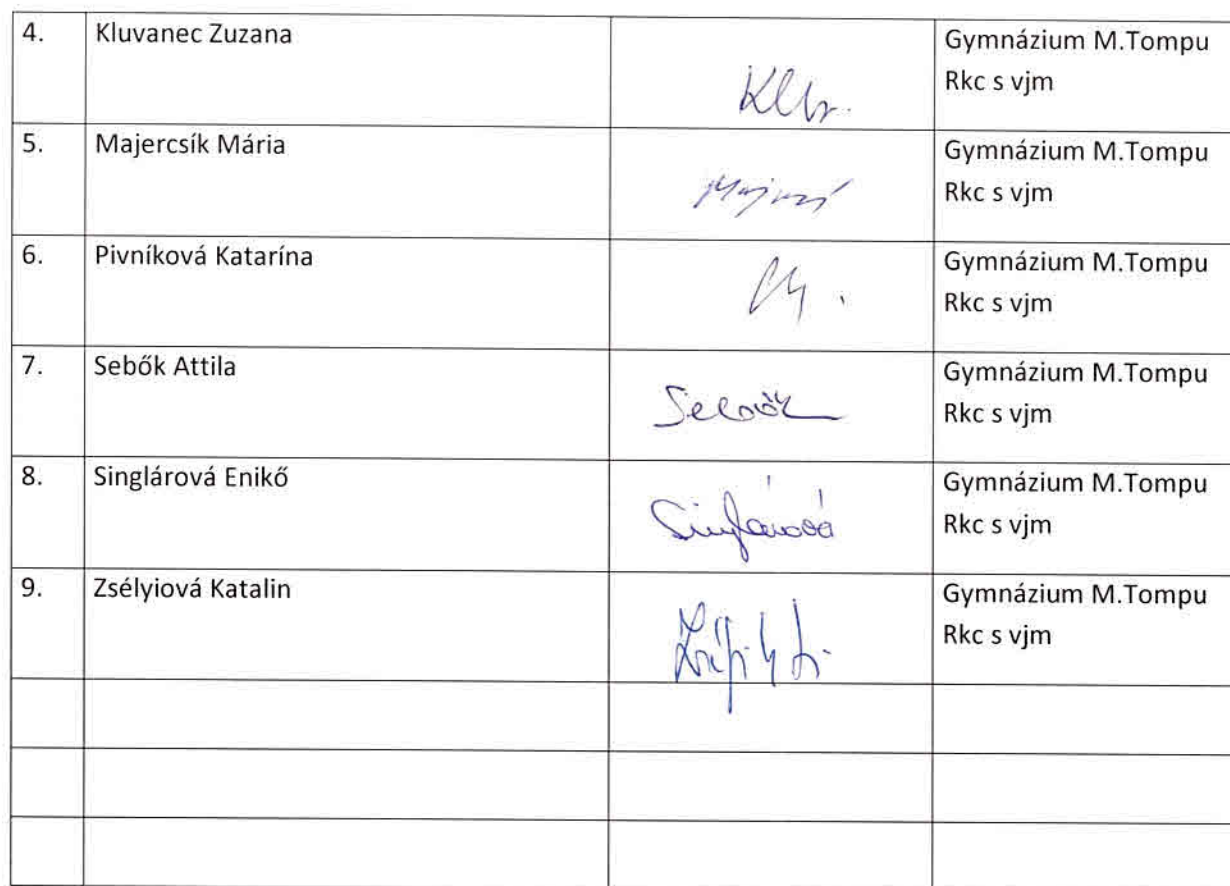 4. Kluvanec Zuzana Gymnázium M.Tompu
Rkc s vjm
5. Majercsík Mária Gymnázium M.Tompu
Rkc s vjm
6. Pivníková Katarína Gymnázium M.Tompu
Rkc s vjm
7. Sebők Attila Gymnázium M.Tompu
Sebők
Rkc s vjm
8. Singlárová Enikő Gymnázium M.Tompu
Singlárová
Rkc s vjm
9. Zsélyiová Katalin Gymnázium M.Tompu
Rkc s vjm